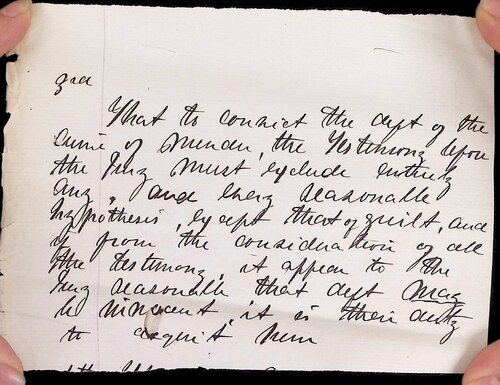 2nd
That to convict the deft of the
crime of Murder, the Testimony upon
the Jury Must exclude entirely
any, and every reasonable
hypothesis, except that of guilt, and
if from the consideration of all
the testimony, it appear to the
Jury reasonable that deft may
be innocent, it is their duty
to acquit him